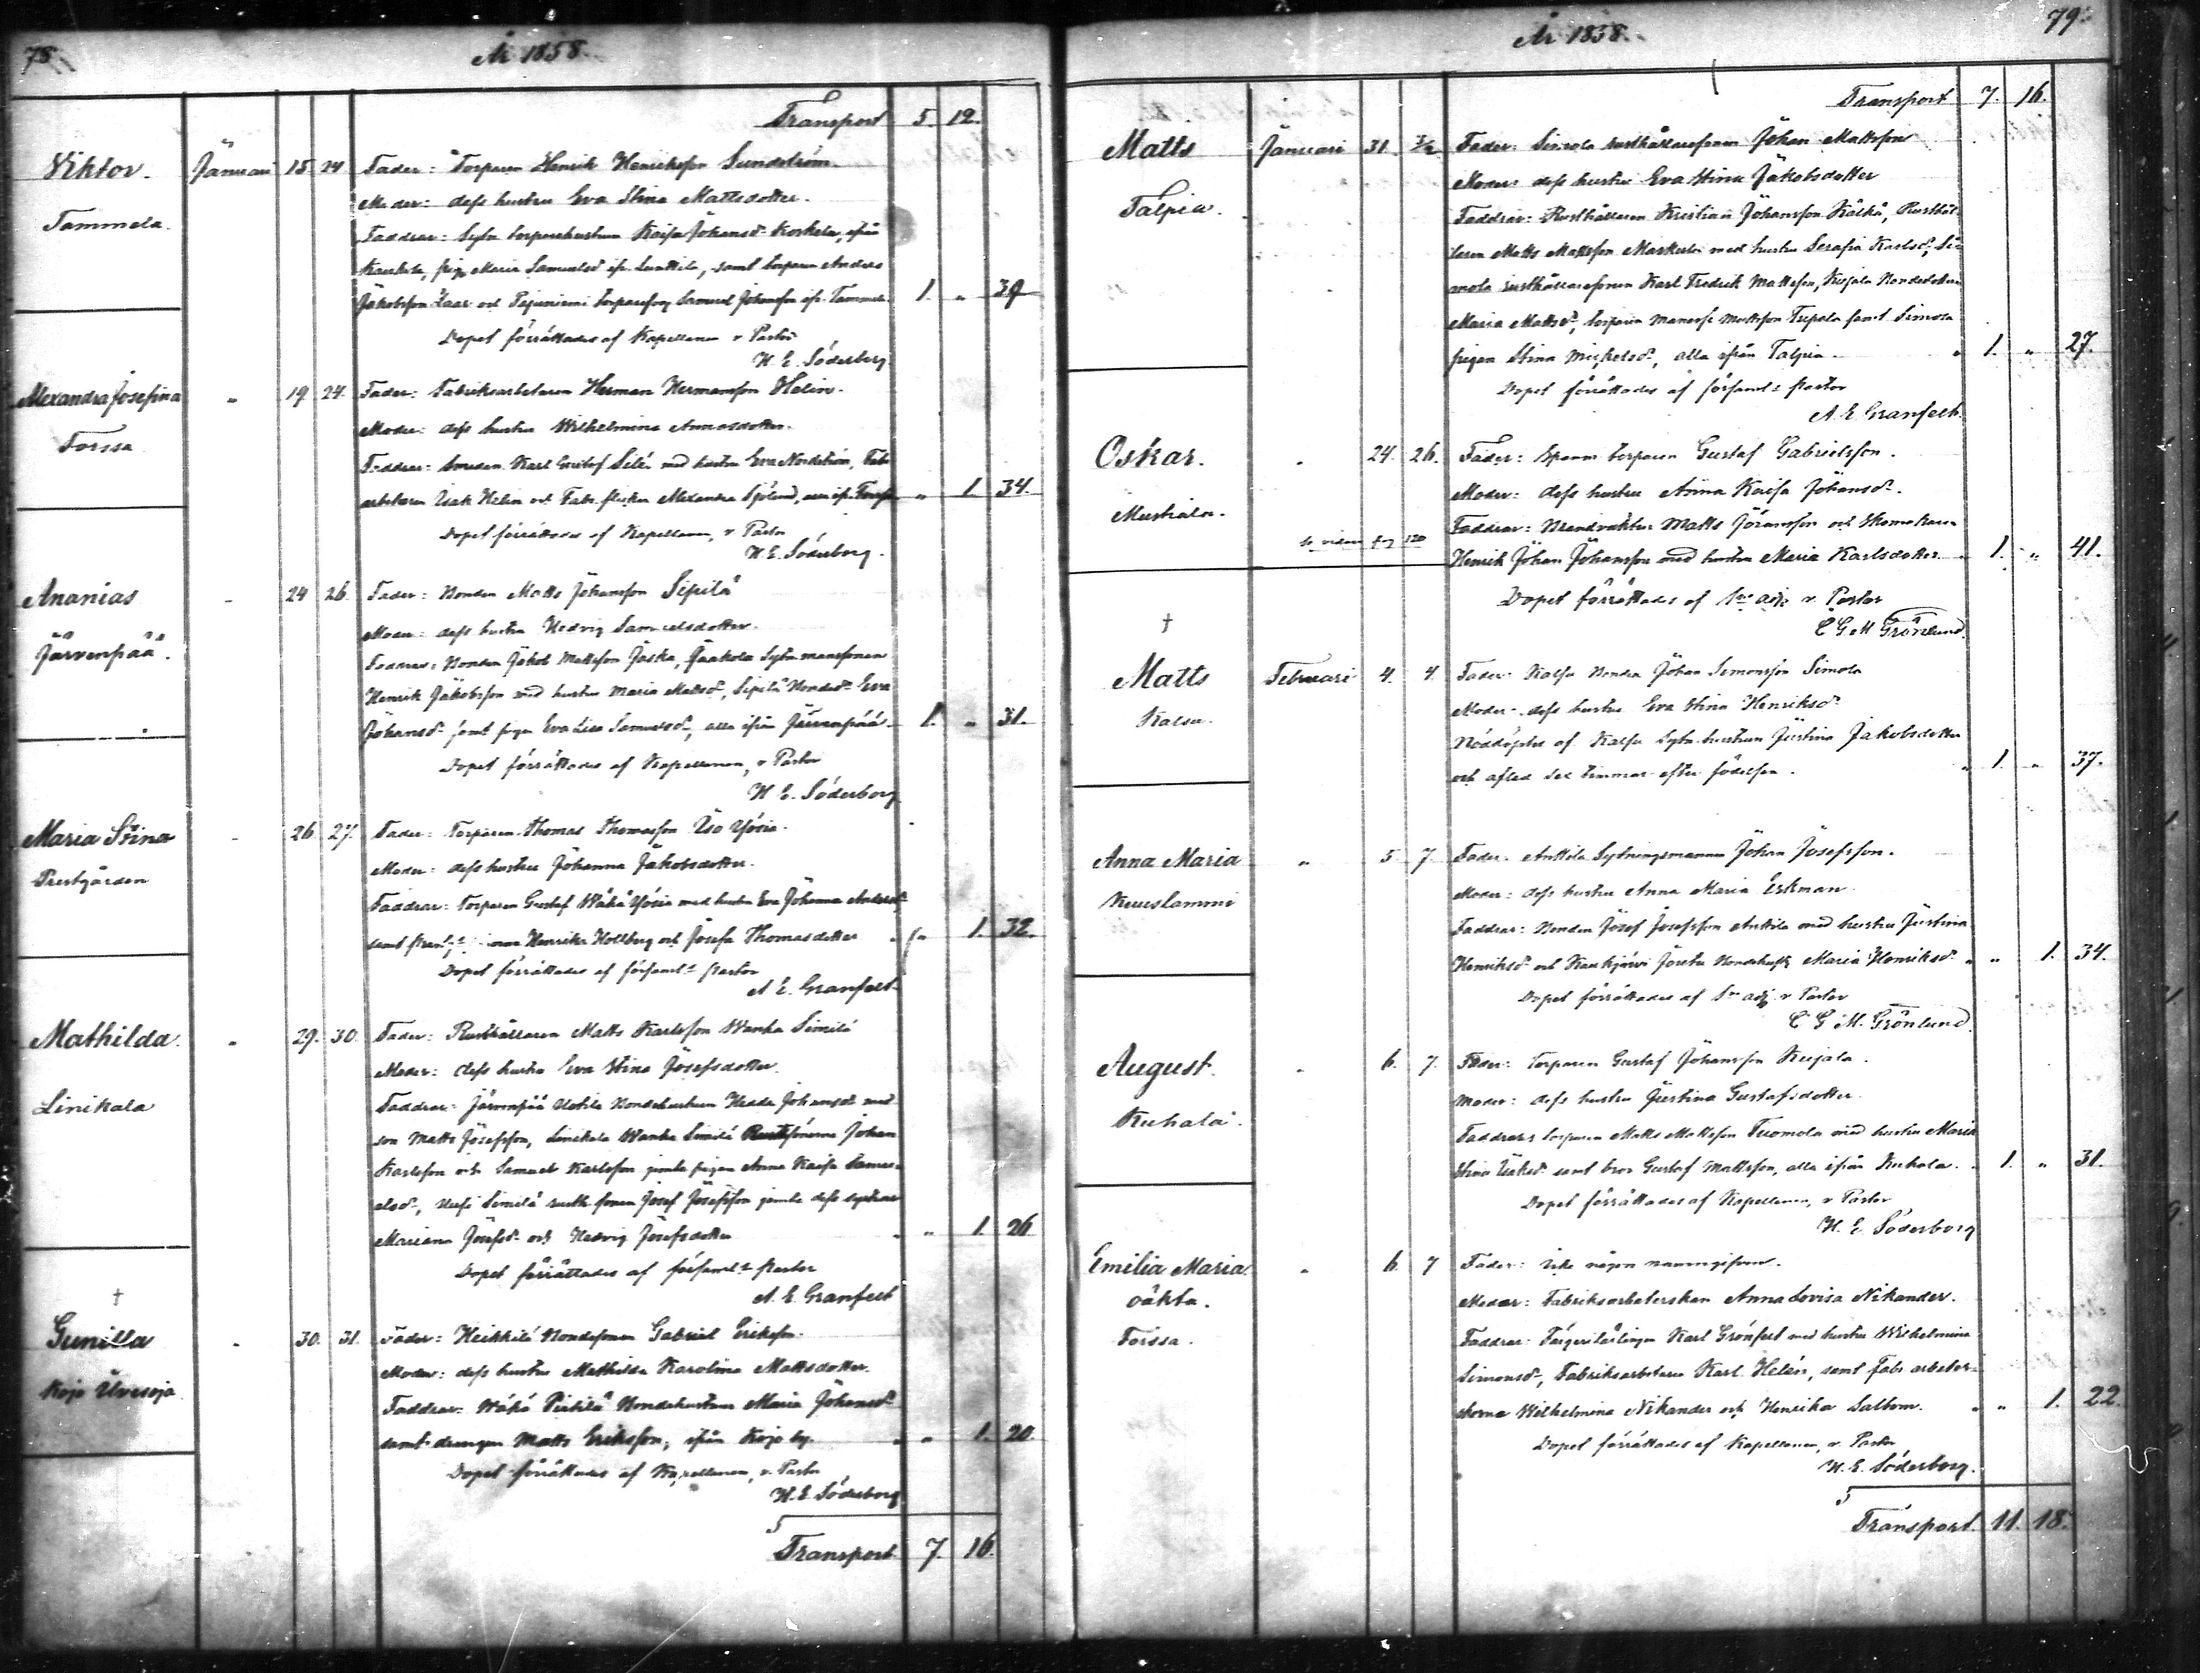 78.
År 1858.
Transport 5. 12.
Viktor. Januari 15 24 Fader: Torparen Henrik Henricksson Sundström
Moder: dess hustru Eva Stina Mattsdotter.
Tammela. Faddrar: Sytn. torparehustrun Kaisa Johansd. Koskela, ifrån
Kaukola, pig. Maria Samuelsd. ifr. , samt torparen Anders
Jakobsson och torpareson Samuel Johansson ifr. Tammela 1. „ 39
Dopet förrättades af Kapellanen v Pastor
H. E. Söderborg
Alexandra Josefina „ 19 24. Fader: Fabriksarbetaren Herman Hermansson Helin.
Moder: dess hustru Wilhelmina Annasdotter.
Forssa Faddrar: Smeden Karl Gustaf Selén med hustru Eva Nordström, Fab:
arbetaren Isak Helin och Fabr. flickan Alexandra Sjölund, alla ifr. Forssa „ 1. 34.
Dopet förrättades af Kapellanen, v Pastor
H. E. Söderborg.
Ananias „ 24 26. Fader: Bonden Matts Johansson Sipilä
Moder: dess hustru Hedvig Samuelsdotter.
Järvenpää. Faddrar: Bonden Jakob Mattsson Jaska, Jaakola Sytn. mansonen
Henrik Jakobsson med hustru Maria Mattsd., Sipilä Bonded. Eva
Johansd. samt pigan Eva Lisa Samuelsd., alla ifrån Järvenpää 1. „ 31.
Dopet förrättades af Kapellanen, v Pastor
H E. Söderborg
Maria Stina „ 26 27. Fader: Torparen Thomas Thomasson Iso Yövia.
Moder: dess hustru Johanna Jakobsdotter.
Prestgården Faddrar: Torparen Gustaf Vähä Yövia med hustru Eva Johanna Andersd.
samt Henrika Hollberg och Josefa Thomasdotter „ 1. 32.
Dopet förrättades af församl:s Pastor
A. E. Granfelt
Mathilda. „ 29. 30. Fader: Rusthållaren Matts Karlsson Wanha Similä
Moder: dess hustru Eva Stina Josefsdotter.
Linikala Faddrar: Järvenpää Uotila Bondehustrun Hedda Johansd. med
son Matts Josefsson, Linikala Wanha Similä Rustsönerne Johan
Karlsson och Samuel Karlsson jemte pigan Anna Kaisa Samu-
elsd., Uusi Similä rusth. sonen Josef Josefsson jemte dess systrar
Mariana Josefsd. och Hedvig Josefsdotter „ 1 26
Dopet förrättades af församl:s Pastor
A. E. Granfelt
†
Gunilla „ 30. 31. Fader: Heikkilä Bondesonen Gabriel Eriksson.
Moder: dess hustru Mathilda Karolina Mattsdotter.
Kojo Faddrar: Vähä Pietilä Bondehustrun Maria Johansd.
samt drengen Matts Eriksson, ifrån Kojo by. „ 1. 20.
Dopet förrättades af Kapellanen, v. Pastor
H. E. Söderborg
Transport 7. 16.
79.
År 1858.
Transport 7. 16.
Matts Januari 31. 3/2 Fader: Simola rusthållaresonen Johan Mattsson
Moder: dess hustru Eva Stina Jakobsdotter
Talpia. Faddrar: Rusthållaren Kristian Johansson Kälkä, Rusthål-
laren Matts Mattsson Markula med hustru Serafia Karlsd., Si-
mola rusthållaresonen Karl Fredrik Mattsson, Kujala Bondedottern
Maria Mattsd., torparen Manasse Mattsson samt Simola
pigan Stina Michelsd., alla ifrån Talpia. 1. „ 27.
Dopet förrättades af församl:s Pastor
A. E Granfelt.
Oskar. „ 24. 26. Fader: Spanm. torparen Gustaf Gabrielsson.
Moder: dess hustru Anna Kaisa Johansd.
Mustiala. Faddrar: Brandvakten Matts Göransson och Skomakaren
se vidare pag 120
Henrik Johan Johansson med hustru Maria Karlsdotter 1. „ 41.
Dopet förrättades af 1re adj: v. Pastor
C G M Grönlund.
†
Matts Februari 4. 4. Fader: Kalsu Bonden Johan Simonsson Simola
Moder: dess hustru Eva Stina Henriksd.
Kalsu. Nöddöptes af Kalsu Sytn. hustrun Justina Jakobsdotter
och afled sex timmar efter födelsen. 1. „ 37.
Anna Maria „ 5 7 Fader: Anttila Sytningsmannen Johan Josefsson.
Moder: dess hustru Anna Maria Eskman
Kuuslammi Faddrar: Bonden Josef Josefsson Anttila med hustru Justina
Henriksd. och Kaukjärvi Bondehustr. Maria Henriksd. „ 1. 34.
Dopet förrättades af 1re adj v Pastor
C G M. Grönlund.
August. „ 6. 7. Fader: Torparen Gustaf Johansson Kujala.
Moder: dess hustru Justina Gustafsdotter.
Kuhala. Faddrar: torparen Matts Mattsson Tuomola med hustru Maria
Stina Isaksd. samt bror Gustaf Mattsson, alla ifrån Kuhala. 1. „ 31.
Dopet förrättades af Kapellanen, v Pastor
H. E. Söderborg
Emilia Maria. „ 6. 7 Fader: icke någon namngifven.
oäkta. Moder: Fabriksarbeterskan Anna Lovisa Nikander.
Forssa. Faddrar: Färgerilärlingen Karl Grönfelt med hustru Wilhelmina
Simonsd., Fabriksarbetaren Karl Helén, samt Fabr. arbeter-
skorna Wilhelmina Nikander och Henrika Salbom. „ 1. 22.
Dopet förrättades af Kapellanen, v. Pastor
H. E. Söderborg.
Transport. 11. 18.